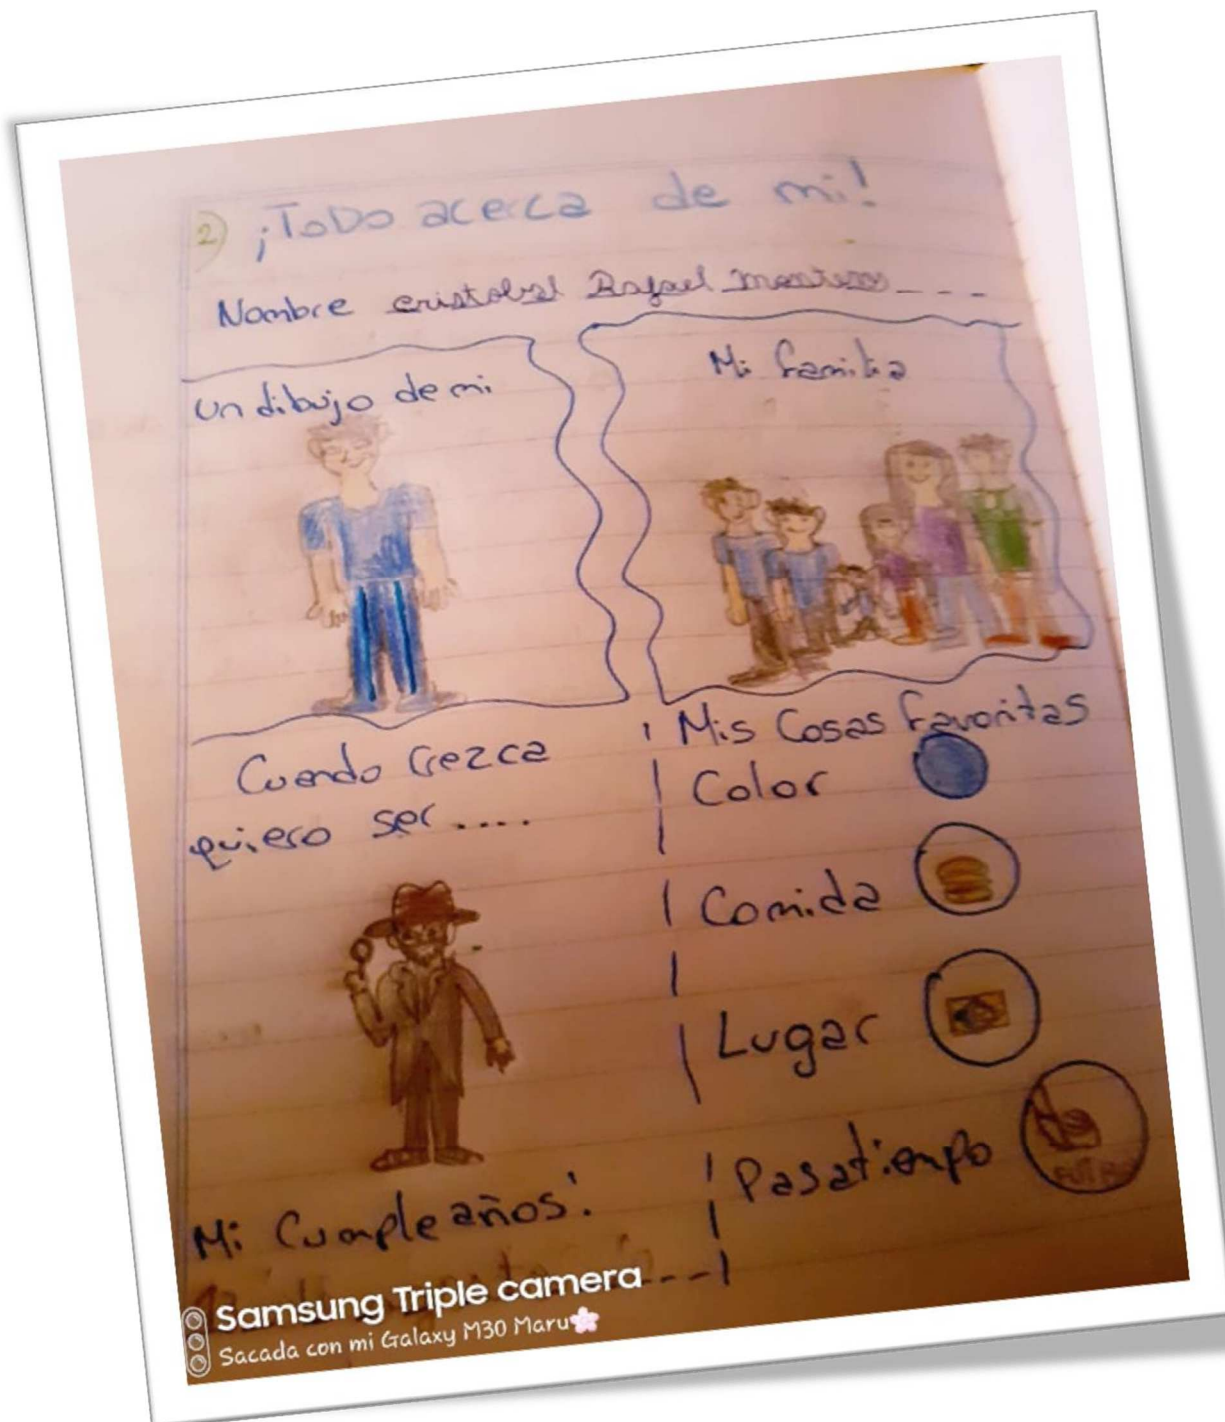 2) ¡ToDo acerca de mi!
Nombre cristobal Rafael
un dibujo de mi
Mi familia
Cuando crezca
quiero ser....
Mis Cosas favoritas
Color
Comida
Lugar
Pasatiempo
Mi Cumpleaños:
Samsung Triple camera
Sacada con mi Galaxy M30 Maru